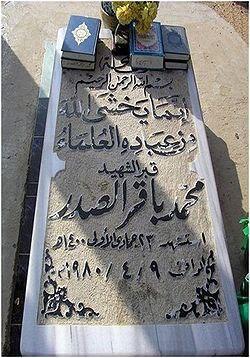 بسم الله الرحمن الرحيم
إنما يخشى الله
من عباده العلماء
قبر الشهيد
محمد باقر الصدر
استشهد ٢٣ جمادي الأولى ١٤٠٠هـ
الموافق ٩ / ٤ / ١٩٨٠م